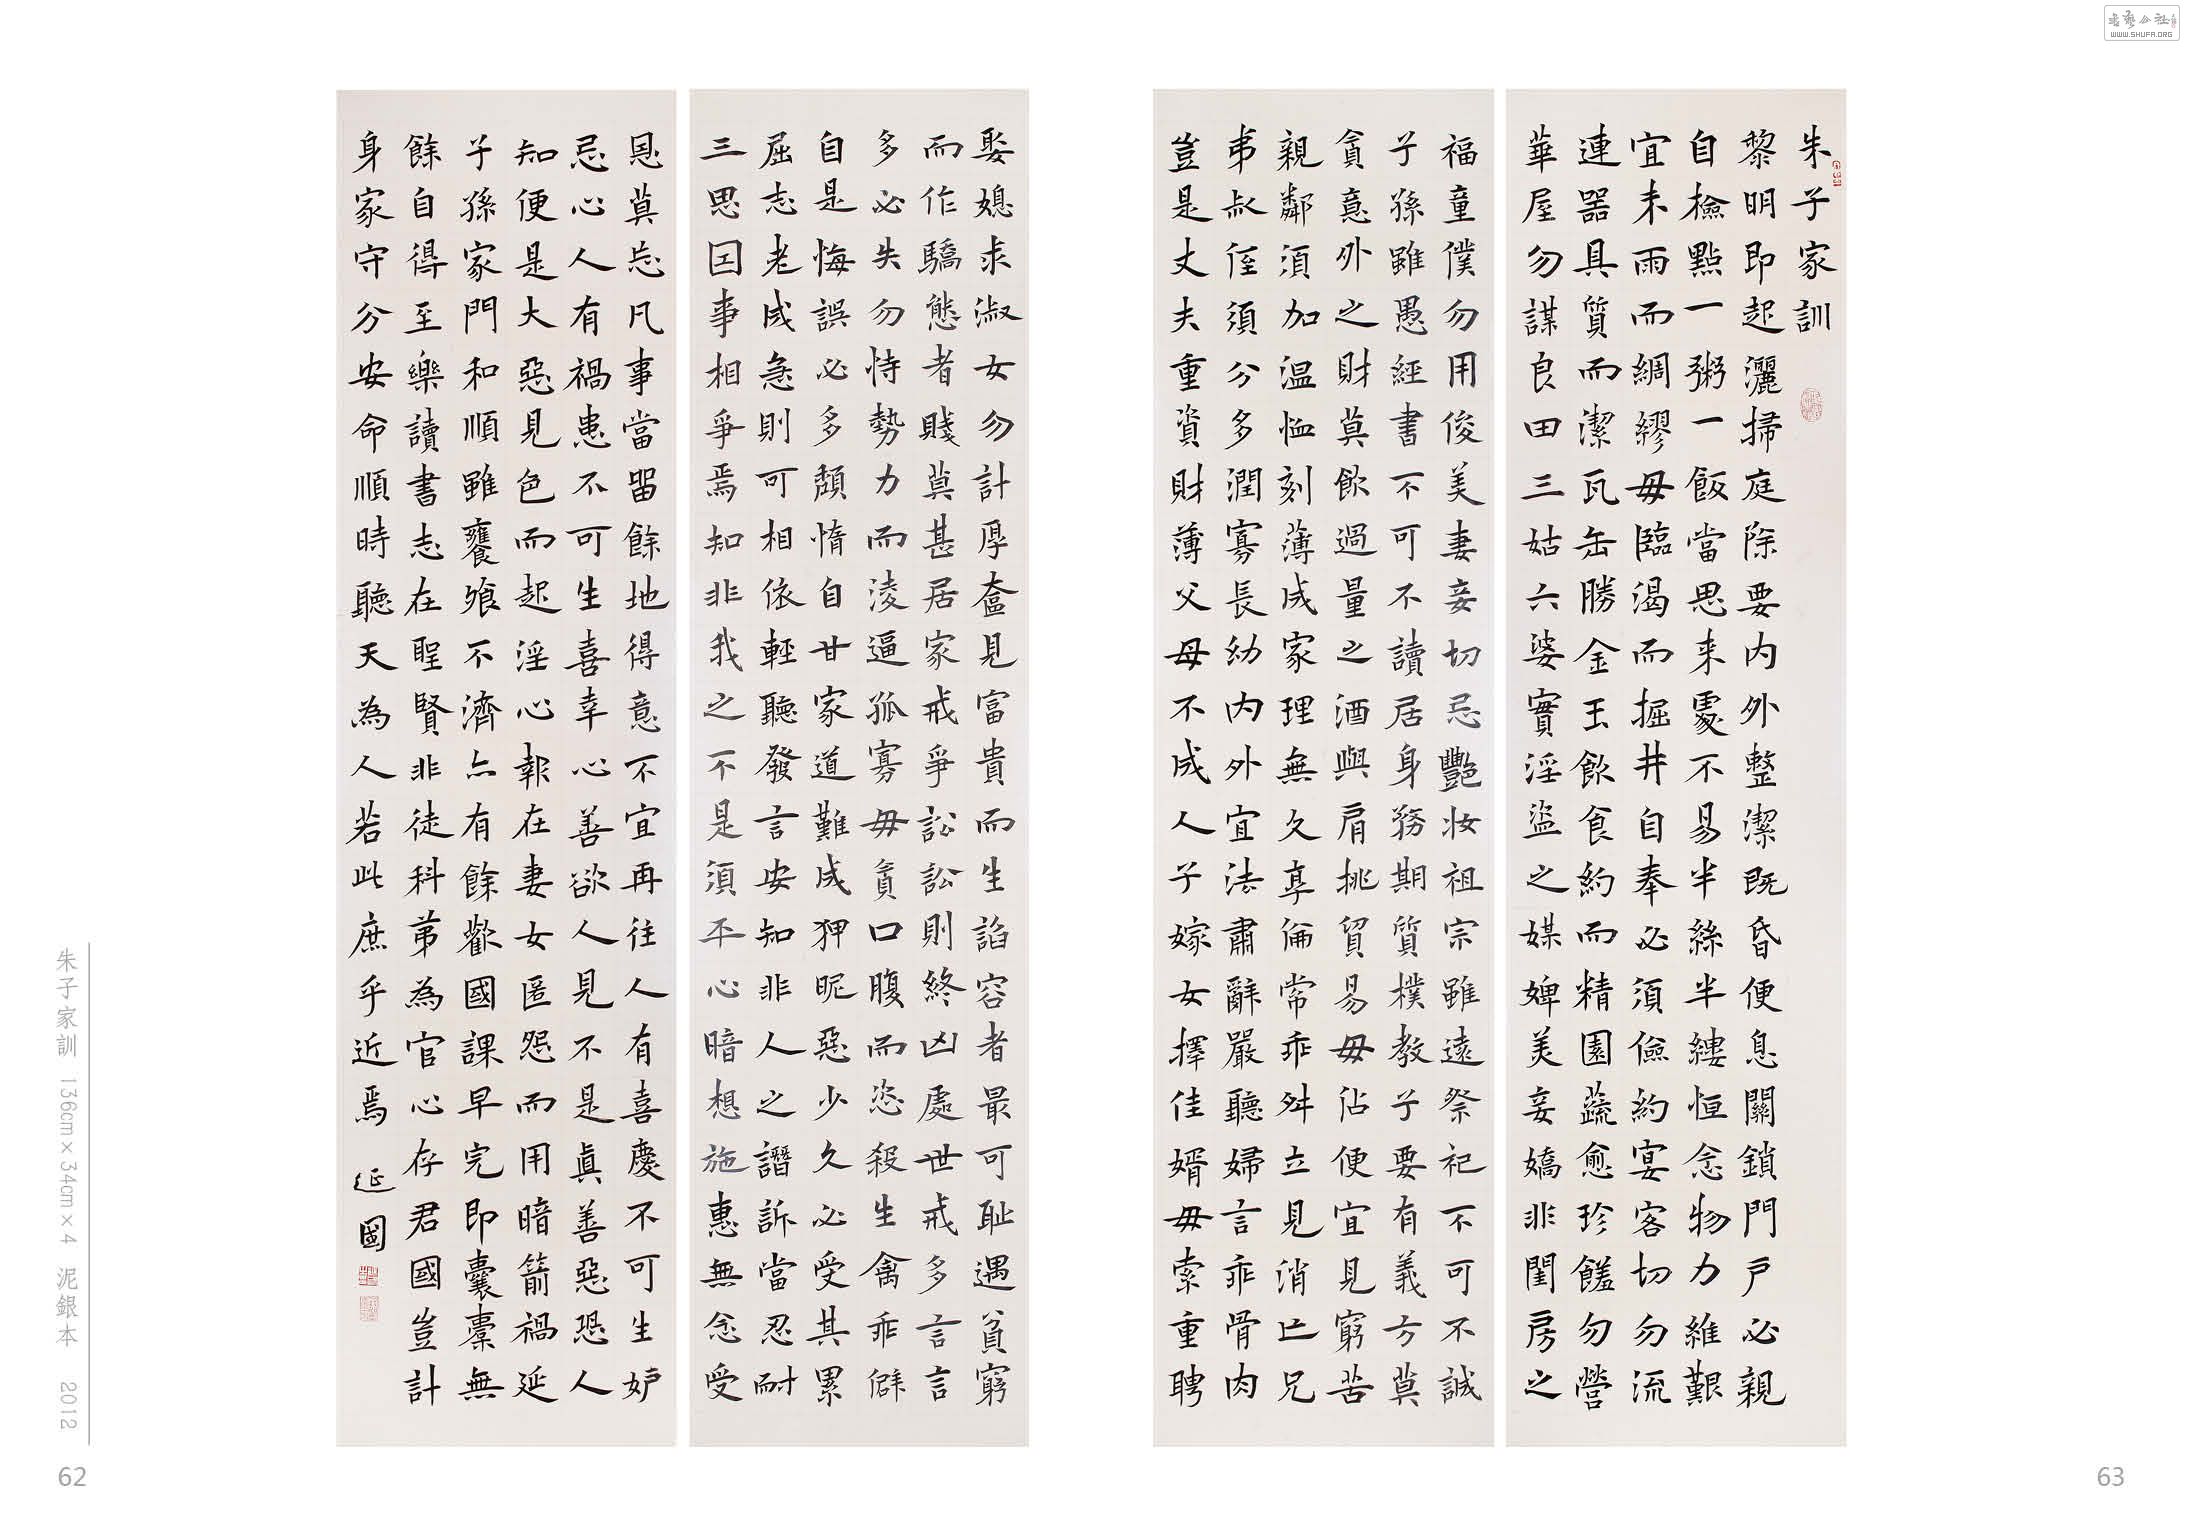 朱子家訓
黎明即起灑掃庭除要内外整潔既昏便息關鎖門户必親
自檢點一粥一飯當思来處不易半絲半縷恒念物力維艱
宜未雨而綢繆毋臨渴而掘井自奉必須儉約宴客切勿流
連器具質而潔瓦缶勝金玉飲食約而精園蔬愈珍饈勿營
華屋勿謀良田三姑六婆實淫盜之媒婢美妾嬌非閨房之
福童僕勿用俊美妻妾切忌艷妝祖宗雖遠祭祀不可不誠
子孫雖愚經書不可不讀居身務期質樸教子要有義方莫
貪意外之財莫飲過量之酒與肩挑貿易毋佔便宜見窮苦
親鄰須加温恤刻薄成家理無久享倫常乖舛立見消亡兄
弟叔侄須分多潤寡長幼内外宜法肅辭嚴聽婦言乖骨肉
豈是丈夫重資財薄父母不成人子嫁女擇佳婿毋索重聘
娶媳求淑女勿計厚奩見富貴而生諂容者最可耻遇貧窮
而作驕態者賤莫甚居家戒爭訟訟則終凶處世戒多言言
多必失勿恃勢力而淩逼孤寡毋貪口腹而恣殺生禽乖僻
自是悔誤必多頹惰自甘家道難成狎昵惡少久必受其累
屈志老成急則可相依輕聽發言安知非人之譖訴當忍耐
三思因事相爭焉知非我之不是須平心暗想施惠無念受
恩莫忘凡事當留餘地得意不宜再往人有喜慶不可生妒
忌心人有禍患不可生喜幸心善欲人見不是真善惡恐人
知便是大惡見色而起淫心報在妻女匿怨而用暗箭禍延
子孫家門和順雖饔飧不濟亦有餘歡國課早完即囊橐無
餘自得至樂讀書志在聖賢非徒科第為官心存君國豈計
身家守分安命順時聽天為人若此庶乎近焉 延國
朱子家訓 136cm×34cm×4 泥銀本 2012
62
63
WWW.SHUFA.ORG